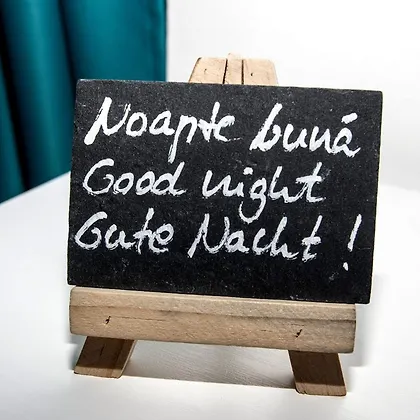 Noapte bună
Good night
Gute Nacht !